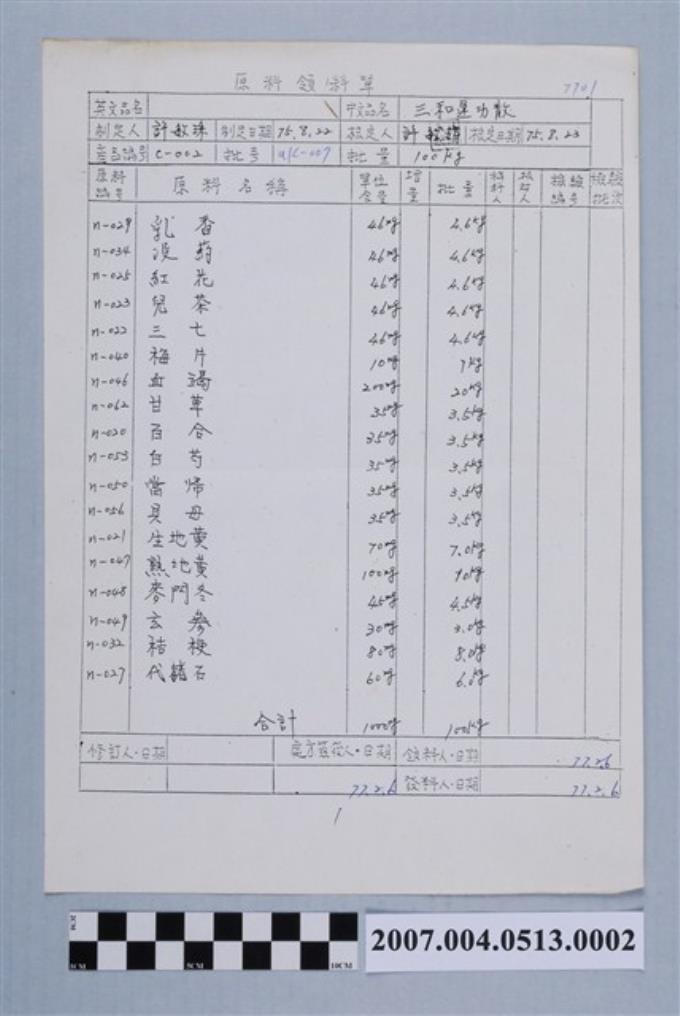 原料領料單 7701
英文品名 中文品名 三和運功散
制定人 許敏珠 制定日期 75.8.22 核定人 許 核定日期 75.8.23
產品編號 C-002 批号 批量 100kg
原料編号 原料名稱 單位含量 增量 批量 領料人 人 檢驗編号 檢驗批次
n-029 乳香 46mg 4.6kg
n-034 沒葯 46mg 4.6kg
n-025 紅花 46mg 4.6kg
n-023 兒茶 46mg 4.6kg
n-022 三七 46mg 4.6kg
n-040 梅片 10mg 1kg
n-046 血竭 200mg 20kg
n-062 甘草 35mg 3.5kg
n-020 百合 35mg 3.5kg
n-053 白芍 35mg 3.5kg
n-050 當帰 35mg 3.5kg
n-056 貝母 35mg 3.5kg
n-021 生地黄 70mg 7.0kg
n-047 熟地黄 100mg 10kg
n-048 麥門冬 45mg 4.5kg
n-049 玄參 30mg 3.0kg
n-032 桔梗 80mg 8.0kg
n-027 代赭石 60mg 6.0kg
合計 1000mg 100kg
修訂人·日期 處方簽發人·日期 領料人·日期 77.2.6
77.2.6 發料人·日期 77.2.6
1
2CM
1CM 5CM 10CM
2007.004.0513.0002